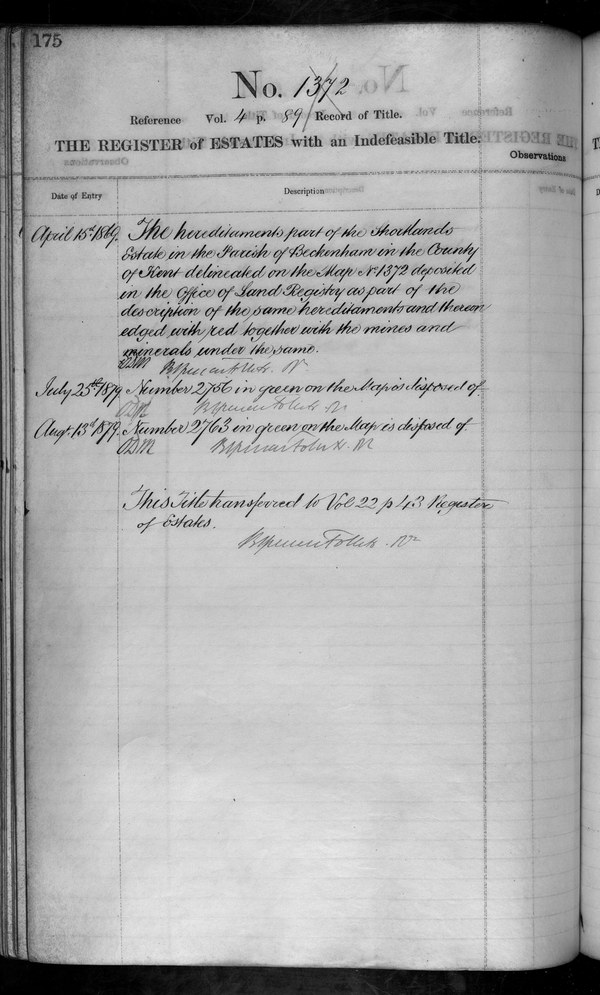 175
No. 1372
Reference Vol. 4 p. 89 Record of Title.
THE REGISTER of ESTATES with an Indefeasible Title.
Observations
Date of Entry
Description
April 15th 1869. The hereditaments part of the Shortlands
Estate in the Parish of Beckenham in the County
of Kent delineated on the Map No. 1372 deposited
in the Office of Land Registry as part of the
description of the same hereditaments and thereon
edged with red together with the mines and
minerals under the same.
July 25th 1879. Number 2756 in green on the Map is disposed of.
DM
Augt. 13th 1879. Number 2763 in green on the Map is disposed of.
DM
This Title transferred to Vol 22 p 43 Register
of Estates.